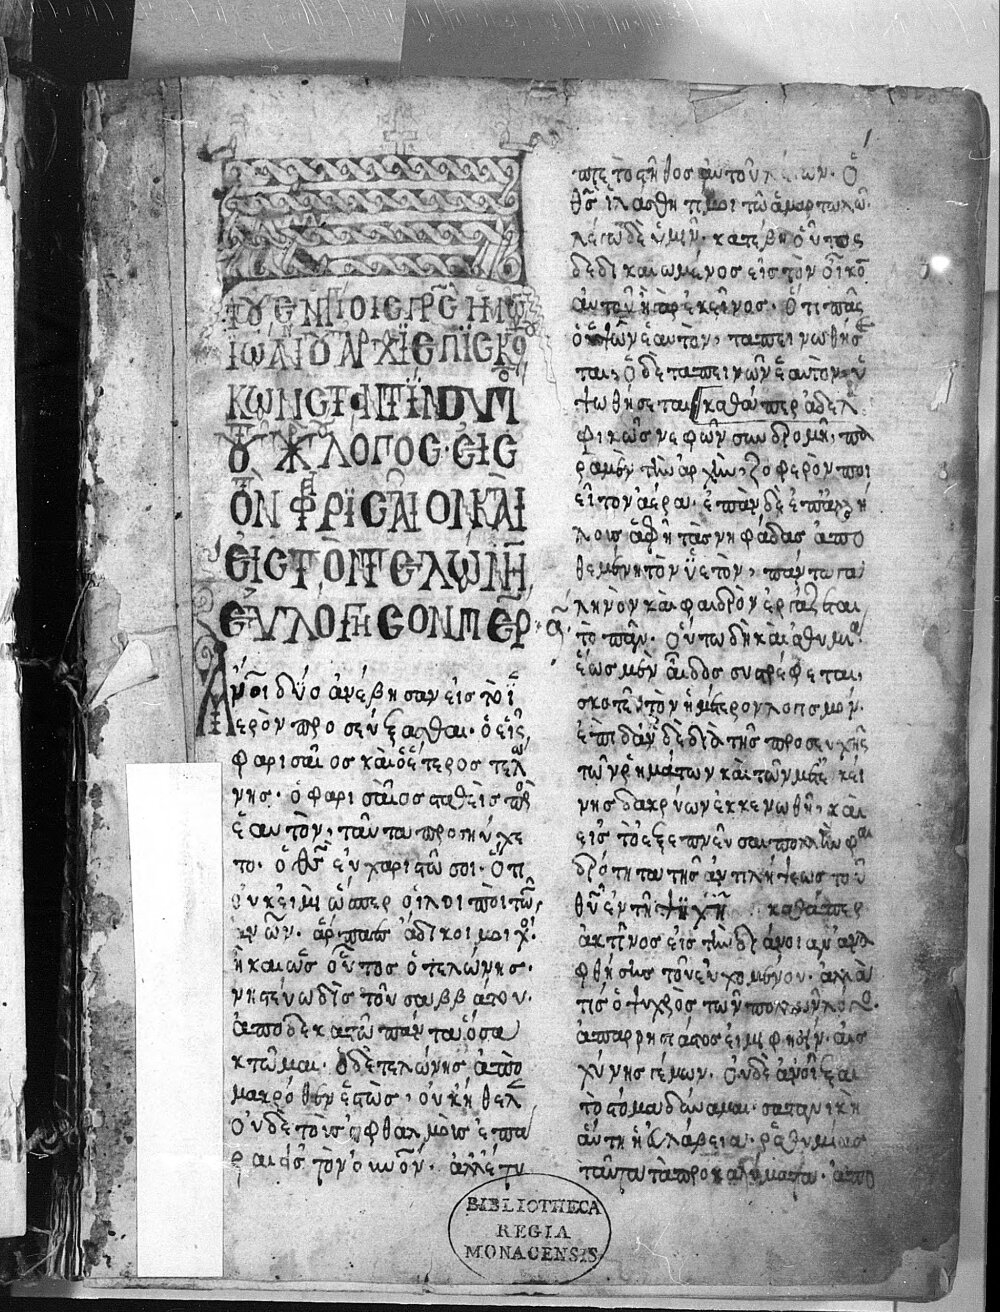 ΤΟΥ ΕΝ ΑΓΙΟΙΣ ΠΡΣ ΗΜΩ
ΙΩΑΝΟΥ ΑΡΧΙΕΠΙΣΚΟ
ΚΩΝΣΤΑΝΤΙΝΟΥΠ
ΛΟΓΟΣ· ΕΙΣ
ΤΟΝ ΦΑΡΙΣΑΙΟΝ ΚΑΙ
ΕΙΣ ΤΟΝ ΤΕΛΩΝΗ
ΕΥΛΟΓΗΣΟΝ ΠΕΡ
Ανοι δύο ἀνέβησαν εἰς τὸ ἱ
ερὸν προσεύξασθαι· ὁ εἷς
φαρισαῖος καὶ ὁ ἕτερος τελώ
νης· ὁ φαρισαῖος σταθεὶς πρὸς
ἑαυτὸν, ταῦτα προσηύχε
το· ὁ θς εὐχαριστῶ σοι· ὅτι
οὐκ εἰμὶ ὥσπερ οἱ λοιποὶ τῶν
ανων· ἅρπαγες ἄδικοι μοιχοὶ·
ἢ καὶ ὡς οὗτος ὁ τελώνης·
νηστεύω δὶς τοῦ σαββάτου·
ἀποδεκατῶ πάντα ὅσα
κτῶμαι· ὁ δὲ τελώνης ἀπὸ
μακρόθεν ἑστὼς, οὐκ ἤθελεν
οὐδὲ τοὺς ὀφθαλμοὺς ἐπᾶ
ραι εἰς τὸν οὐνόν· ἀλλ' ἔτυ
πτε τὸ στῆθος αὐτοῦ λέγων· ὁ
θς ἱλάσθητί μοι τῶ ἁμαρτωλῶ·
λέγω δὲ ὑμῖν· κατέβη οὗτος
δεδικαιωμένος εἰς τὸν οἶκον
αὐτοῦ ἢ παρ' ἐκεῖνος· ὅτι πᾶς
ὁ ὑψῶν ἑαυτὸν, ταπεινωθήσε
ται, ὁ δὲ ταπεινῶν ἑαυτὸν ὑ
ψωθήσεται· καθάπερ ἀδελ
φικῶς νεφῶν συνδρομὴ, πα
τὴν ἀρχὴν, ζοφερὸν ποι
εῖ τὸν ἀέρα· ἐπὰν δὲ ἐπαλλή
λοις ἀφῆ τὰς νηφάδας ἀπο
θεμένη τὸν ὑετὸν, πάντα γα
ληνὸν καὶ φαιδρὸν ἐργάζεται
τὸ πᾶν· οὕτω δὴ καὶ ἀθυμία
ἕως μὲν ἔνδον συστρέφεται,
σκοτεῖ τὸν ἡμέτερον λογισμόν·
ἐπειδὰν δὲ διὰ τῆς προσευχῆς
τῶν ῥημάτων καὶ τῶν μετ' ἐκεί
νης δακρύων ἐκκενωθῆ, καὶ
εἰς τὸ ἔξω πνεύσασα πολλὴν φαι
δρότητα τῆς ἀντιλήψεως τοῦ
θυ ἐν τῆ ψυχῆ καθάπερ
ἀκτῖνος εἰς τὴν διάνοιαν ἀνα
φθήσης τοῦ εὐχομένου· ἀλλὰ
τίς ὁ ψυχρὸς τῶν πολλῶν λόγος·
ἀπαρρησίαστος εἰμί φησιν· αἰσ
χύνης γέμων· οὐδὲ ἀνοῖξαι
τὸ στόμα δύναμαι· σατανικὴ
αὕτη ἡ εὐλάβεια· ῥαθυμίας
ταῦτα τὰ προκαλύμματα· ἀπο
BIBLIOTHECA
REGIA
MONACENSIS